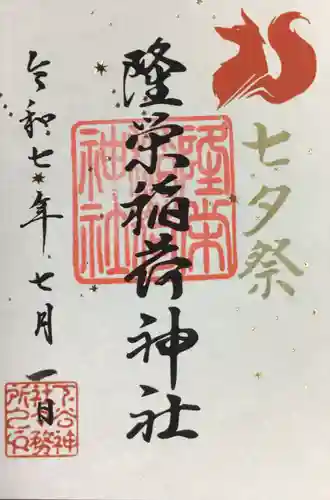 七夕祭
隆栄稲荷神社
隆栄
稲荷
神社
令和七年七月一日
下谷神
社務
所之印